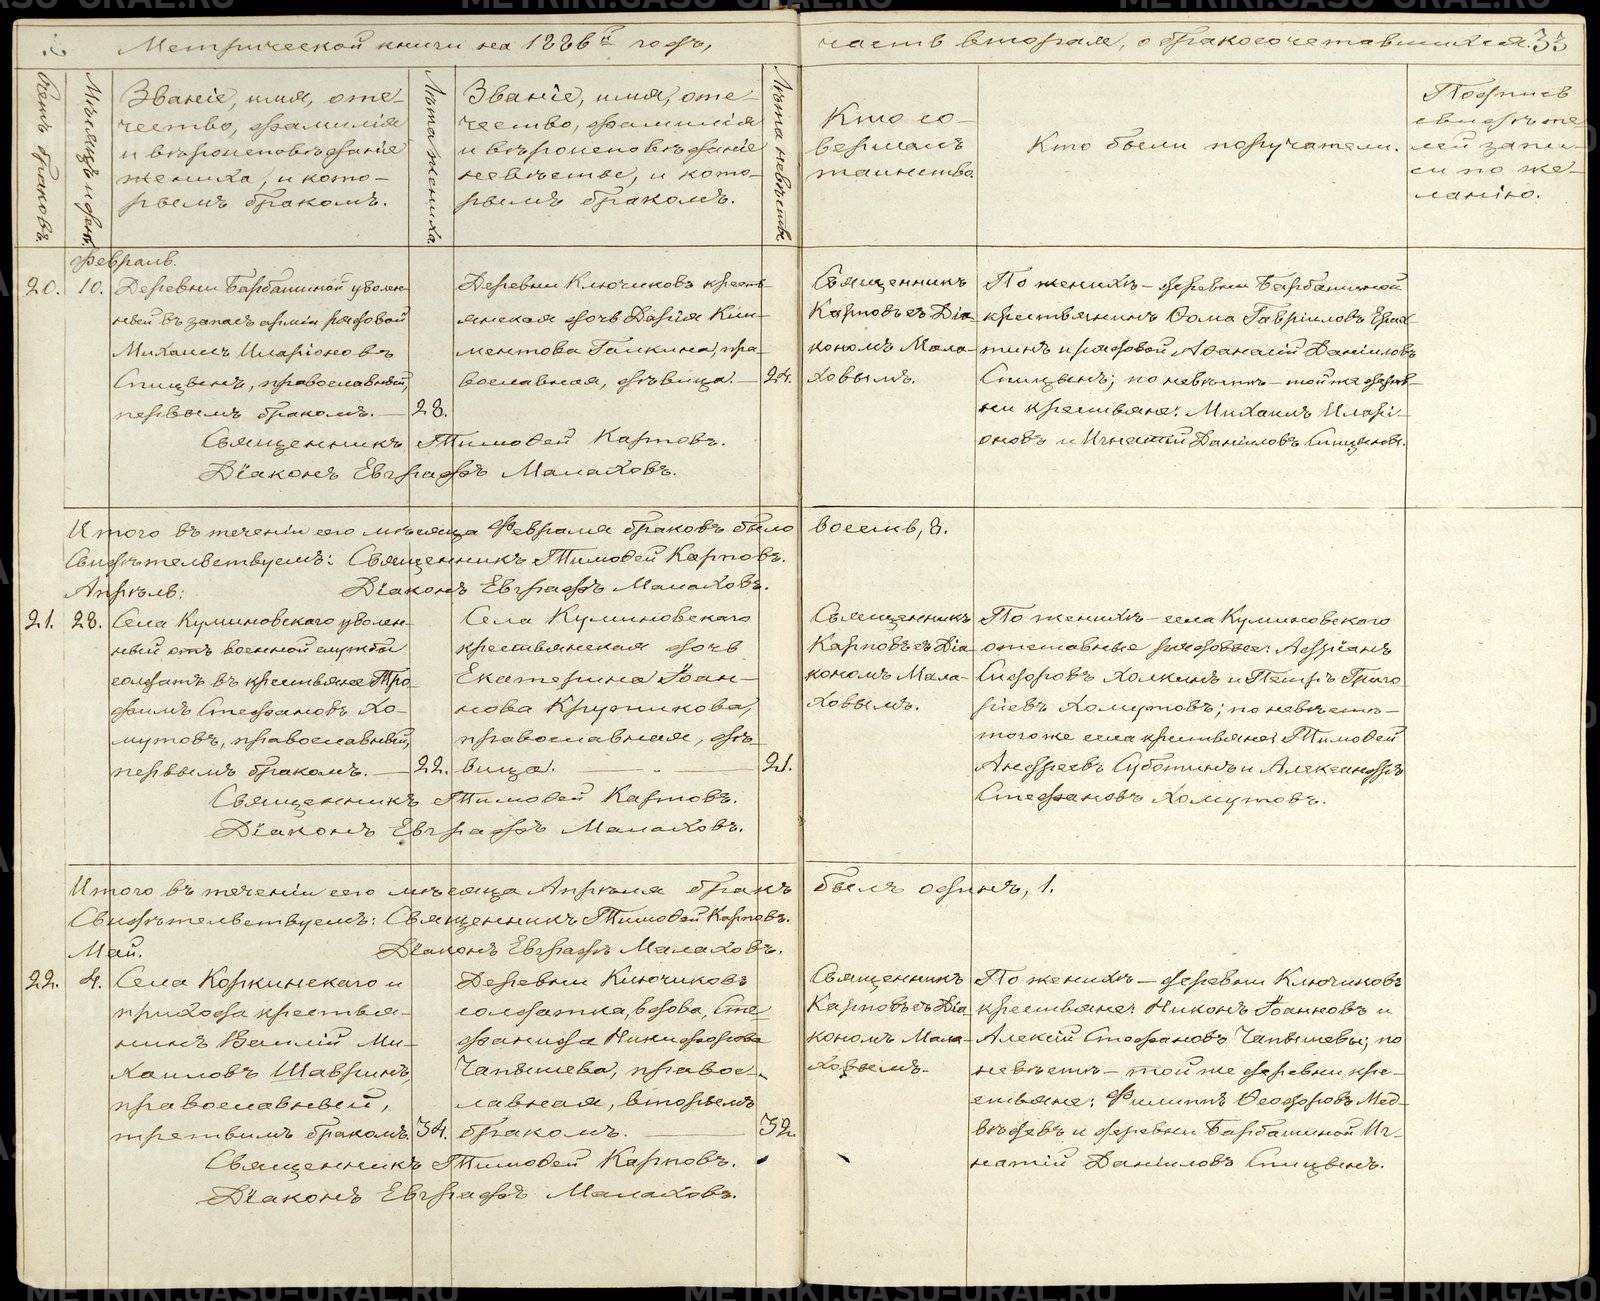 Метрической книги на 1886й годъ,
часть вторая, о бракосочетавшихся.
33
Счетъ браковъ.
Мѣсяцъ и день.
Званіе, имя, оте-
чество, фамилія
и вѣроисповѣданіе
жениха, и кото-
рымъ бракомъ.
Лѣта жениха.
Званіе, имя, оте-
чество, фамилія
и вѣроисповѣданіе
невѣсты, и кото-
рымъ бракомъ.
Лѣта невѣсты.
Кто со-
вершалъ
таинство.
Кто были поручатели.
Подпись
свидѣте-
лей запи-
си по же-
ланію.
Февраль.
20.
10.
Деревни Барбашиной уволен-
ный въ запасъ арміи рядовой
Михаилъ Иларіоновъ
Спицынъ, православный,
первымъ бракомъ. —
28.
Деревни Ключиковъ кресть-
янская дочь Дарія Кли-
ментова Галкина, пра-
вославная, дѣвица. —
24.
Священникъ
Карповъ съ Діа-
кономъ Мала-
ховымъ.
По женихѣ — деревни Барбашиной
крестьянинъ Ѳома Гавріиловъ
и рядовой Аѳанасій Даніиловъ
Спицынъ; по невѣстѣ — той же дерев-
ни крестьяне: Михаилъ Иларі-
оновъ и Игнатій Даніиловъ Спицыны.
Священникъ Тимоѳей Карповъ.
Діаконъ Евграфъ Малаховъ.
Итого въ теченіи сего мѣсяца Февраля браковъ было
восемь, 8.
Свидѣтельствуемъ: Священникъ Тимоѳей Карповъ.
Діаконъ Евграфъ Малаховъ.
Апрѣль:
21.
28.
Села Куминовскаго уволен-
ный отъ военной службы
солдатъ въ крестьяне Тро-
фимъ Стефановъ Хо-
мутовъ, православный,
первымъ бракомъ. —
22.
Села Куминовскаго
крестьянская дочь
Екатерина Іоан-
нова Крупикова,
православная, дѣ-
вица. —
21.
Священникъ
Карповъ съ Діа-
кономъ Мала-
ховымъ.
По женихѣ — села Куминовскаго
отставные рядовые: Адріанъ
Сидоровъ Холкинъ и Петръ Григо-
ріевъ Хомутовъ; по невѣстѣ —
того же села крестьяне: Тимоѳей
Андреевъ Суботинъ и Александръ
Стефановъ Хомутовъ.
Священникъ Тимоѳей Карповъ.
Діаконъ Евграфъ Малаховъ.
Итого въ теченіи сего мѣсяца Апрѣля бракъ
былъ одинъ, 1.
Свидѣтельствуемъ: Священникъ Тимоѳей Карповъ.
Діаконъ Евграфъ Малаховъ.
Май.
22.
4.
Села Коркинскаго и
прихода крестья-
нинъ Василій Ми-
хаиловъ Шавринъ,
православный,
третьимъ бракомъ.
34.
Деревни Ключиковъ
солдатка, вдова, Сте-
фанида Никифорова
Чапышева, правос-
лавная, вторымъ
бракомъ. —
32.
Священникъ
Карповъ съ Діа-
кономъ Мала-
ховымъ.
По женихѣ — деревни Ключиковъ
крестьяне: Никонъ Іоанновъ и
Алексій Стефановъ Чапышевы; по
невѣстѣ — той же деревни кре-
стьяне: Филиппъ Ѳеодоровъ Мед-
вѣдевъ и деревни Барбашиной Иг-
натій Даніиловъ Спицынъ.
Священникъ Тимоѳей Карповъ.
Діаконъ Евграфъ Малаховъ.
METRIKI.GASO-URAL.RU